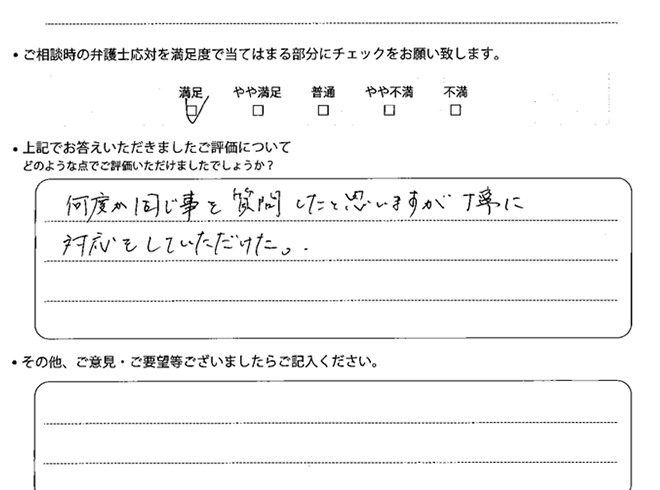 • ご相談時の弁護士応対を満足度で当てはまる部分にチェックをお願い致します。
満足 やや満足 普通 やや不満 不満
• 上記でお答えいただきましたご評価について
どのような点でご評価いただけましたでしょうか？
何度か同じ事を質問したと思いますが丁寧に
対応をしていただけた。
• その他、ご意見・ご要望等ございましたらご記入ください。